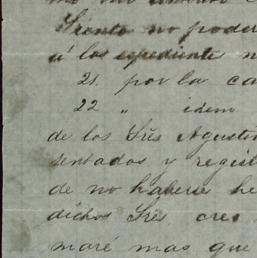 Siento no poder
á los espediente
21. por la ca
22 " idem
de los Sres Agustin
sentados y regist
de no haberse he
dichos Sres. creo
maré mas que